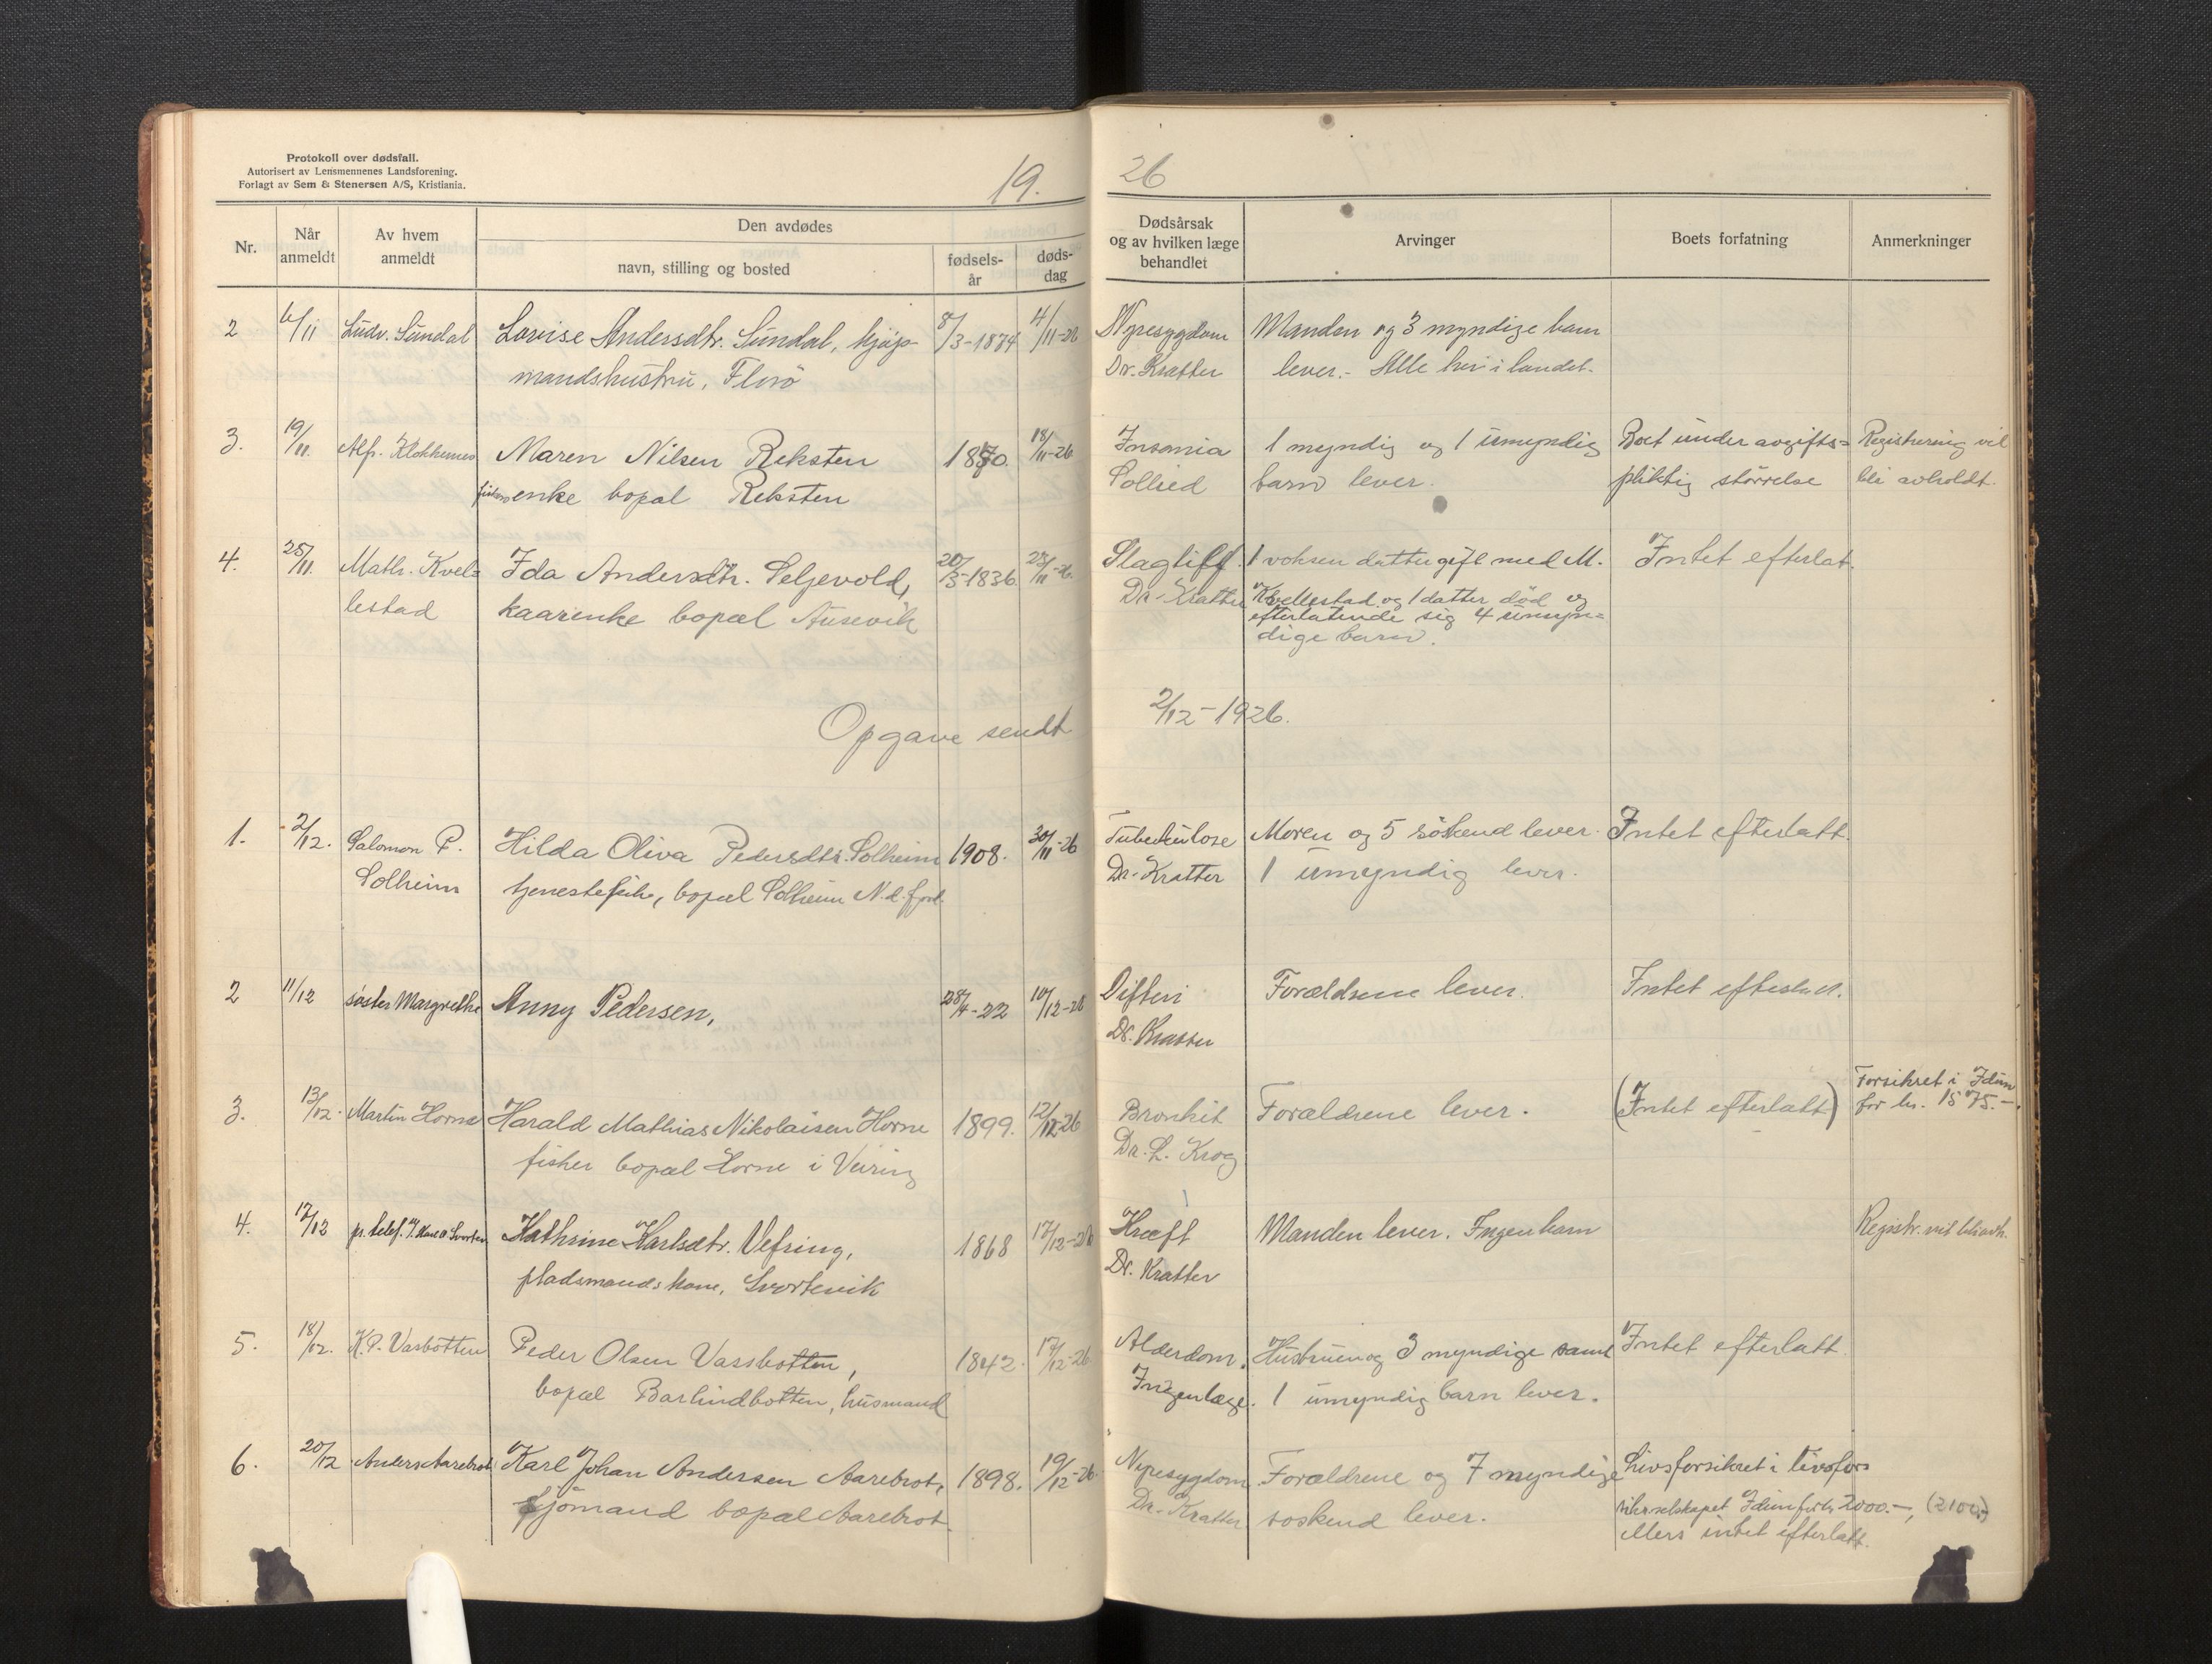 Protokoll over dødsfall.
Autorisert av Lensmennenes Landsforening.
Forlagt av Sem & Stenersen A/S, Kristiania.
19. 26
Nr. Når anmeldt Av hvem anmeldt Den avdødes navn, stilling og bosted fødsels-år døds-dag Dødsårsak og av hvilken læge behandlet Arvinger Boets forfatning Anmerkninger
2 6/11 Ludv. Sundal Lovise Andersdtr. Sundal, kjøp- 8/3-1874 4/11-26 Nyresygdom Manden og 3 myndige barn
mandshustru, Florø Dr. Kratter lever.- Alle her i landet.
3. 19/11. Alf. Klokkernes Maren Nilsen Reksten 1870. 18/11-26 Insania 1 myndig og 1 umyndig Boet under avgifts= Registrering vil
enke bopæl Reksten Sollied barn lever. pliktig störrelse bli avholdt.
4. 25/11. Math. Kvel= Ida Andersdtr. Seljevold, 20/3-1836 25/11-26. Slagtilf. 1 voksen datter gift med M. Intet efterlat.
lestad kaarenke bopæl Ausevik Dr. Kratter Kvellestad og 1 datter död og
efterlatende sig 4 umyn=
dige barn.
Opgave sendt 2/12-1926.
1. 2/12. Salomon P. Hilda Oliva Pedersdtr. Solheim 1908. 30/11-26 Tuberkulose Moren og 5 söskend lever. Intet efterlatt.
Solheim tjenestepike, bopæl Solheim N.d.fjord. Dr. Kratter 1 umyndig lever.
2 11/12 søster Margrethe Anny Pedersen, 28/4-22 10/12-26 Difteri Forældrene lever. Intet efterlatt.
Dr. Kratter
3. 13/12. Martin Horne Harald Mathias Nikolaisen Horne 1899. 12/12-26 Bronkit Forældrene lever. (Intet efterlatt) Forsikret i Idun
fisker bopæl Horne i Veiring Dr. L. Krog for kr. 1575.-
4. 17/12 pr. telef. Kathrine Karlsdtr. Vefring, 1868 17/12-26 Kræft Manden lever. Ingen barn Registr. vil bli avh.
pladsmandskone, Svortevik Dr. Kratter
5. 18/12. K.P. Vasbotten Peder Olsen Vassbotten, 1842. 17/12-26 Alderdom. Hustruen og 3 myndige samt Intet efterlatt.
bopæl Barlindbotten, husmand Ingen læge. 1 umyndig barn lever.
6. 20/12 Anders Aarebrot Karl Johan Andersen Aarebrot, 1898. 19/12-26. Nyresygdom Forældrene og 7 myndige Livsforsikret i livsfors
sjömand bopæl Aarebrot. Dr. Kratter söskend lever. sikr.selskapet Idun for kr. 2000.-, (2100.)
ellers intet efterlatt.